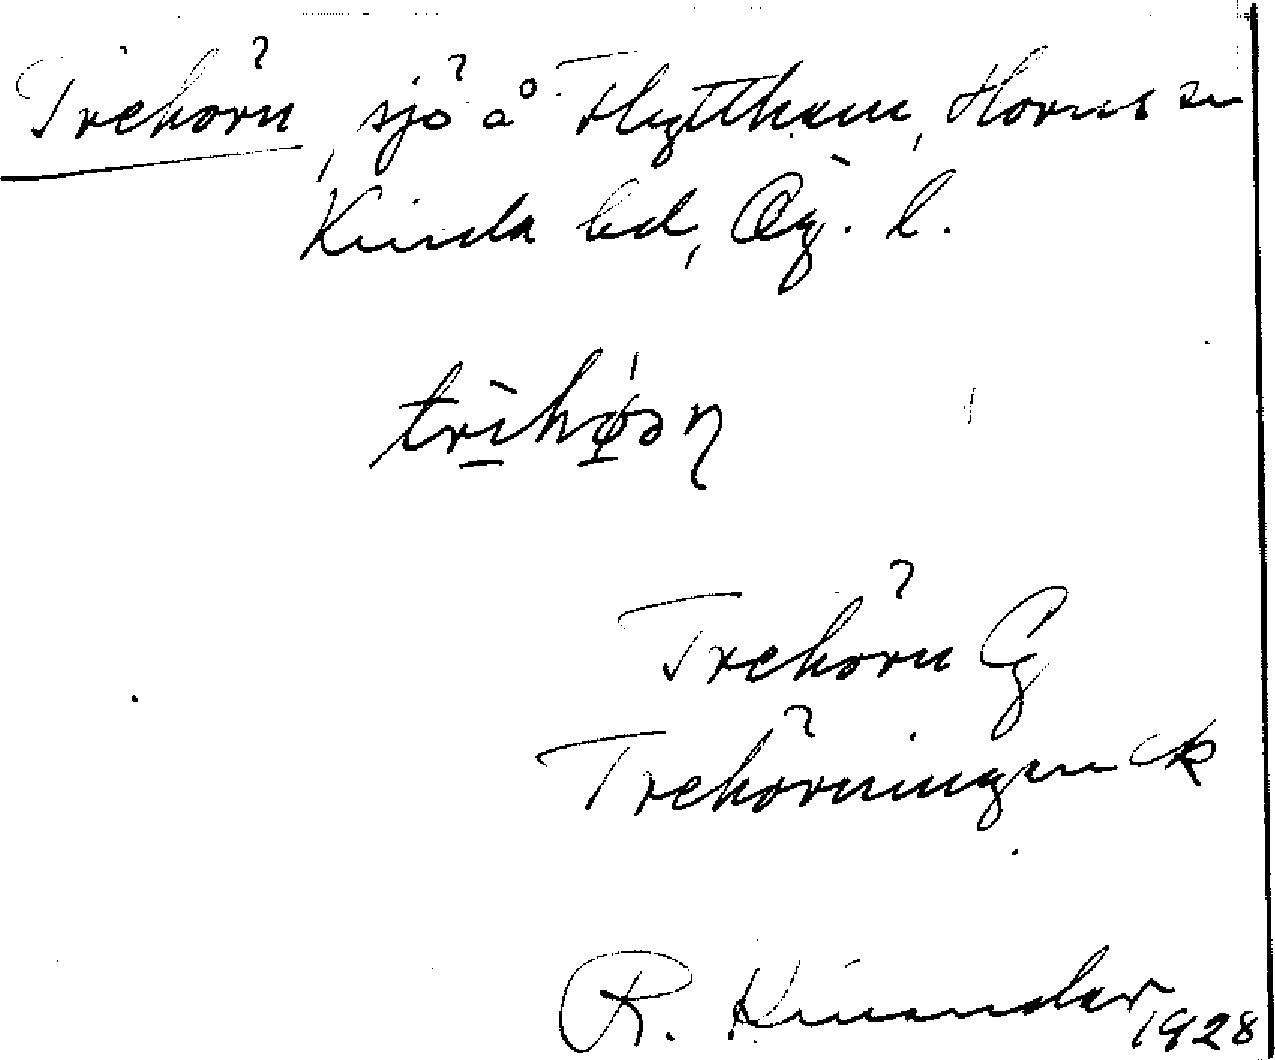 Trehörn, sjö å Flytthem, Horns sn
Kinda hd, Ög. l.
trihøən
Trehörn G
Trehörningen Ek
R. Kinander
1928